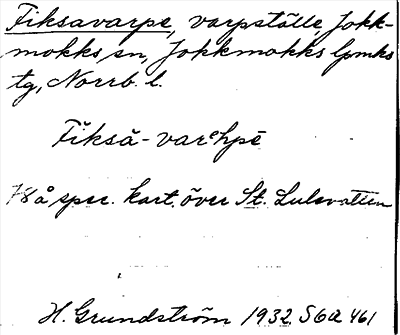 Fiksavarpe, varpställe, Jokk-
mokks sn, Jokkmokks lpmks
tg, Norrb. l.
Fi̊kså-varᵉhpē
78 å spec. kart. över St. Lulevatten
H. Grundström 1932. S6a 461